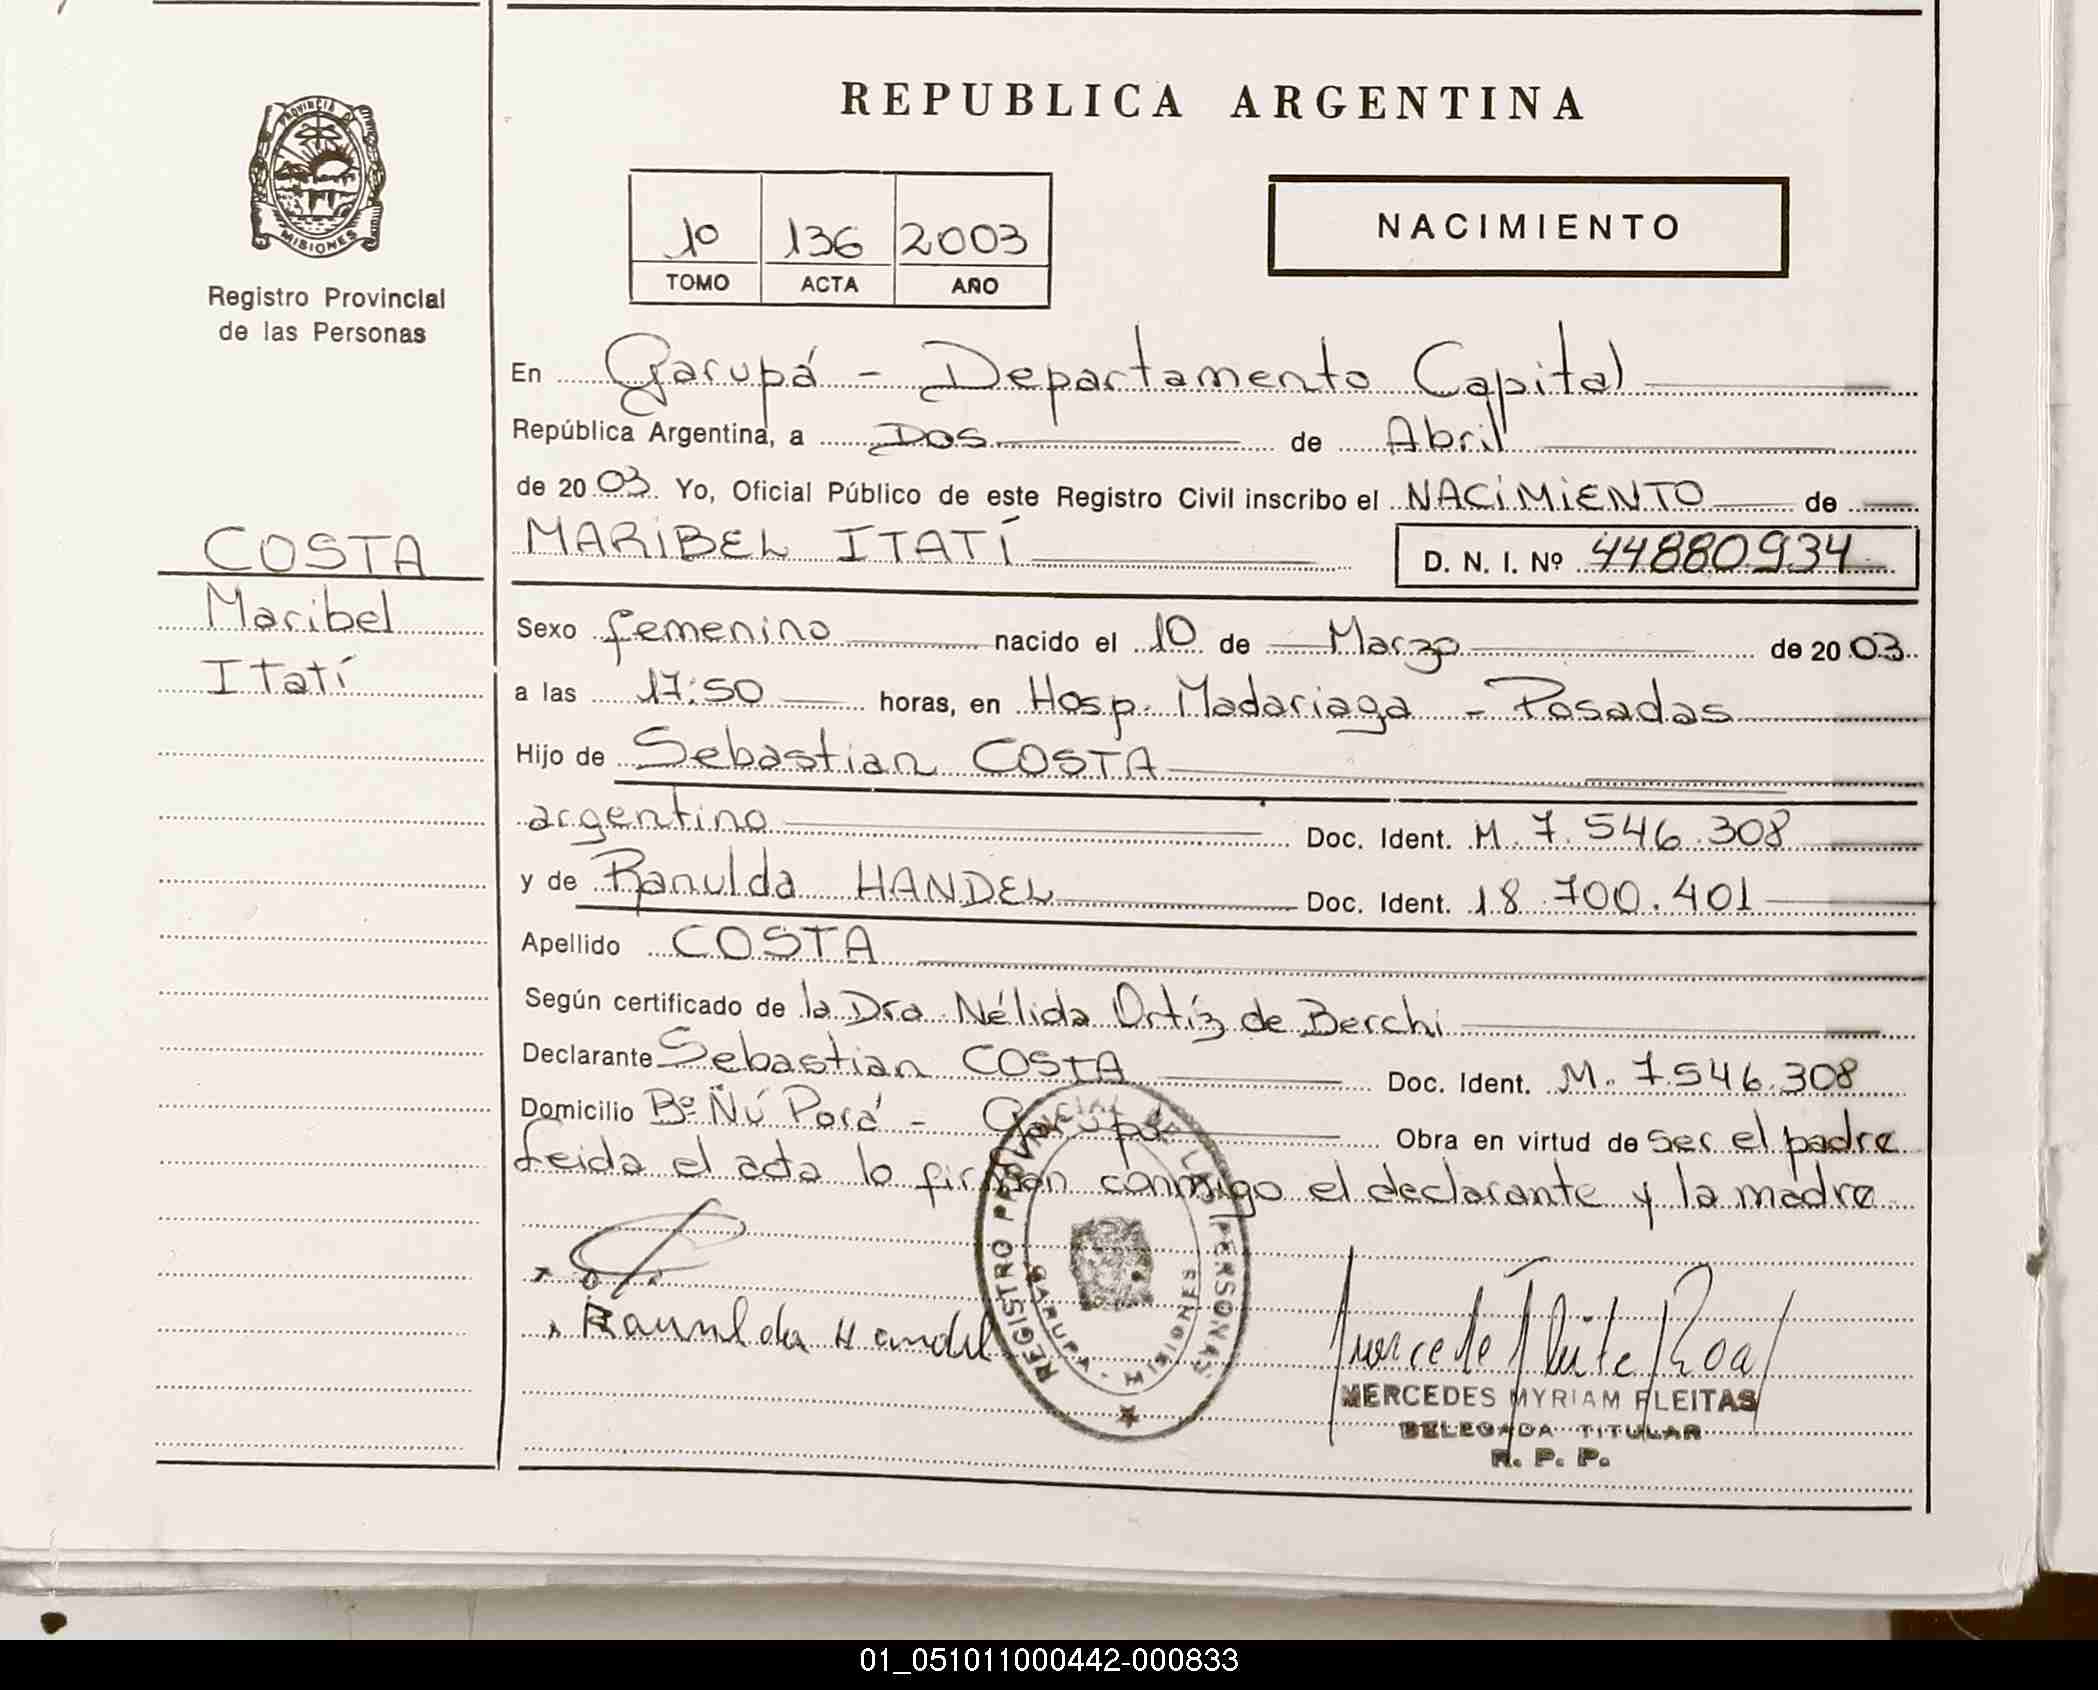 REPUBLICA ARGENTINA
PROVINCIA DE
MISIONES
Registro Provincial
de las Personas
1º 136 2003
TOMO ACTA AÑO
NACIMIENTO
En Garupá - Departamento Capital
República Argentina, a Dos de Abril
de 2003 Yo, Oficial Público de este Registro Civil inscribo el NACIMIENTO de
MARIBEL ITATÍ D. N. I. Nº 44880934
COSTA
Maribel
Itatí
Sexo femenino nacido el 10 de Marzo de 2003
a las 17:50 horas, en Hosp. Madariaga - Posadas
Hijo de Sebastian COSTA
argentino Doc. Ident. M. 7.546.308
y de Ranulda HANDEL Doc. Ident. 18.700.401
Apellido COSTA
Según certificado de la Dra Nélida Ortíz de Berchi
Declarante Sebastian COSTA Doc. Ident. M. 7.546.308
Domicilio Bº Ñú Porá - Garupá Obra en virtud de ser el padre
Leida el acta lo firman conmigo el declarante y la madre
REGISTRO PROVINCIAL DE LAS PERSONAS
GARUPA - MISIONES
Ranulda Handel
MERCEDES MYRIAM FLEITAS
DELEGADA TITULAR
R. P. P.
01_051011000442-000833